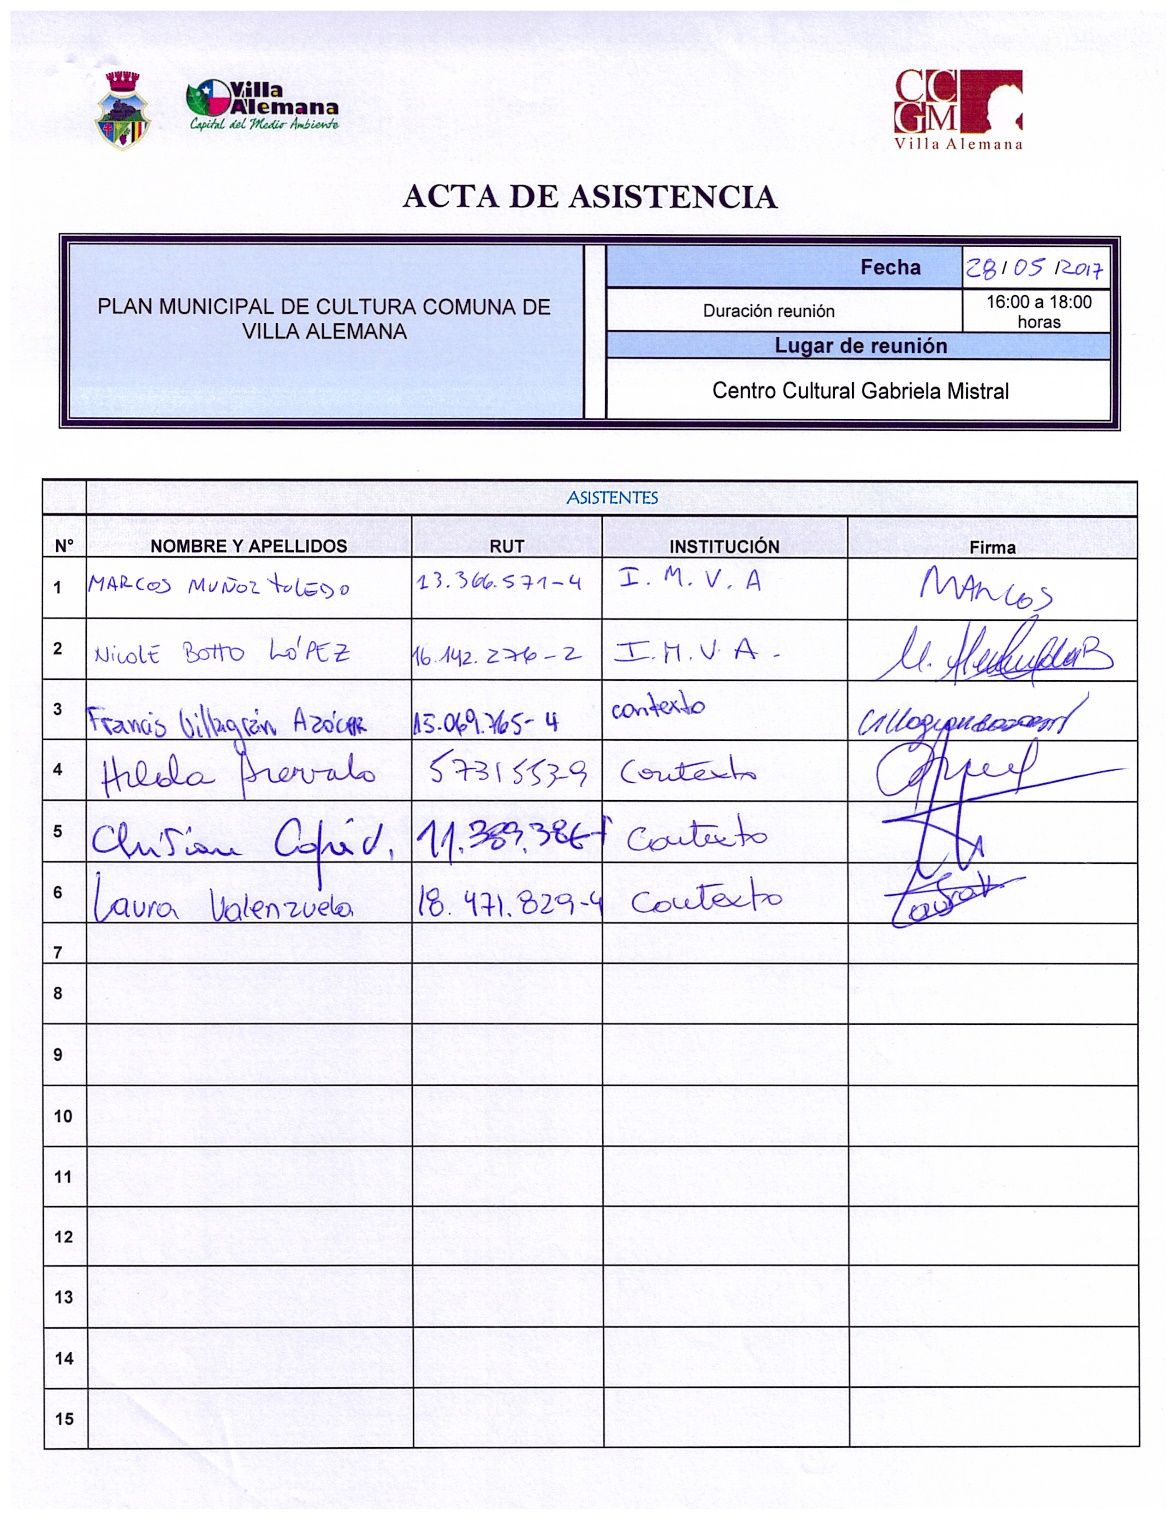 Villa
Alemana
Capital del Medio Ambiente
CC
GM
Villa Alemana
ACTA DE ASISTENCIA
PLAN MUNICIPAL DE CULTURA COMUNA DE
VILLA ALEMANA
Fecha 28/05/2017
Duración reunión 16:00 a 18:00
horas
Lugar de reunión
Centro Cultural Gabriela Mistral
ASISTENTES
N° NOMBRE Y APELLIDOS RUT INSTITUCIÓN Firma
1 MARCOS MUÑOZ TOLEDO 13.366.571-4 I. M. V. A MARCOS
2 NICOLE BOTTO LÓPEZ 16.142.276-2 I. M. V. A.
3 Francis Villagrán Azócar 15.069.765-4 contexto
4 Hilda Arevalo 57315539 Contexto
5 Christian 11.389.386- Contexto
6 Laura Valenzuela 18.471.829-4 Contexto
7
8
9
10
11
12
13
14
15